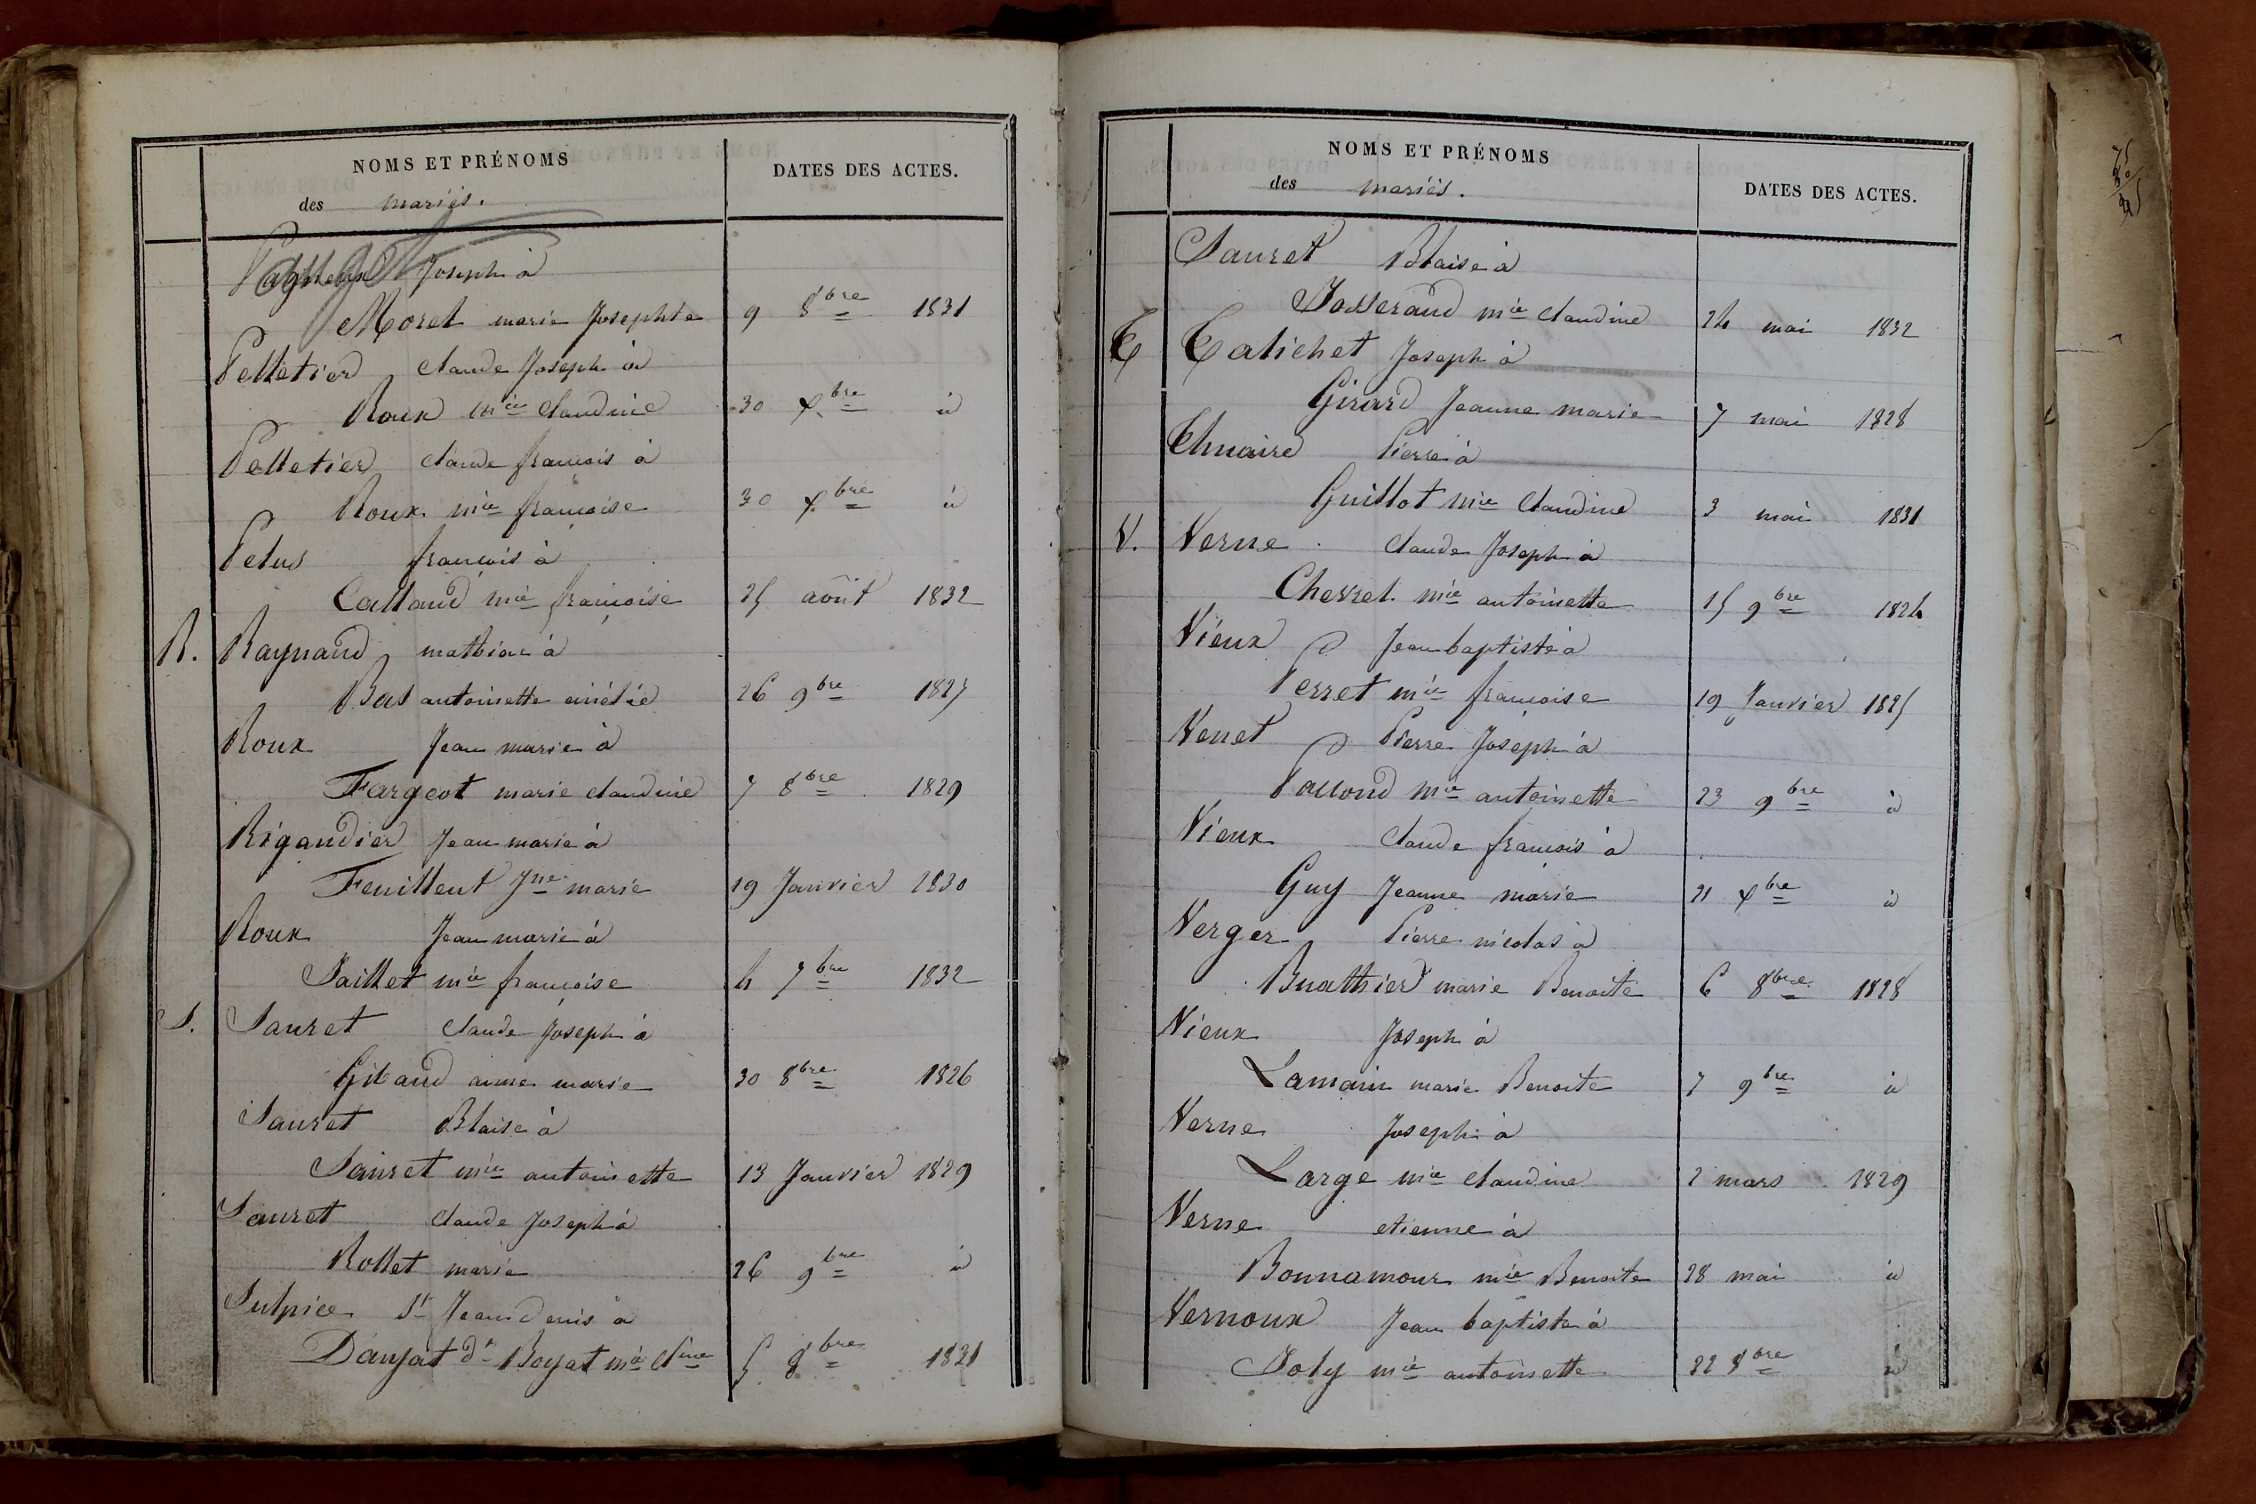 NOMS ET PRÉNOMS
des mariés.
DATES DES ACTES.
Joseph à
Moret marie Josephte 9 8bre 1831
Pelletier claude Joseph à
Roux mie claudine 30 xbre id
Pelletier claude françois à
Roux mie françoise 30 xbre id
Petus françois à
Callaud mie françoise 25 août 1832
R. Raynaud mathieu à
Bas antoinette aimée 26 9bre 1825
Roux Jean marie à
Fargeot marie claudine 7 8bre 1829
Rigaudier Jean marie à
Feuillent Jne marie 19 Janvier 1830
Roux Jean marie à
Jaillet mie françoise 4 7bre 1832
S. Sauret claude Joseph à
Gitaud anne marie 30 8bre 1826
Sauret Blaise à
Sauret mie antoinette 13 Janvier 1829
Sauret claude Joseph à
Rollet marie 26 9bre id
Sulpice St Jean Denis à
Danjat dt Boyat mie clne 5 8bre 1831
NOMS ET PRÉNOMS
des mariés.
DATES DES ACTES.
Sauret Blaise à
Josserand mie claudine 24 mai 1832
T Talichet Joseph à
Girard Jeanne marie 7 mai 1828
Thuaire Pierre à
Guillot mie claudine 3 mai 1831
V. Verne claude Joseph à
Chevret mie antoinette 15 9bre 1824
Vieux Jean baptiste à
Perret mie françoise 19 Janvier 1825
Venet Pierre Joseph à
Paccoud mie antoinette 23 9bre id
Vieux claude françois à
Guy Jeanne marie 21 xbre id
Verger Pierre nicolas à
Buathier marie Benoite 6 8bre 1828
Vieux Joseph à
Lamain marie Benoite 7 9bre id
Verne Joseph à
Large mie claudine 2 mars 1829
Verne etienne à
Bonnamour mie Benoite 28 mai id
Vernoux Jean baptiste à
Joly mie antoinette 22 8bre id